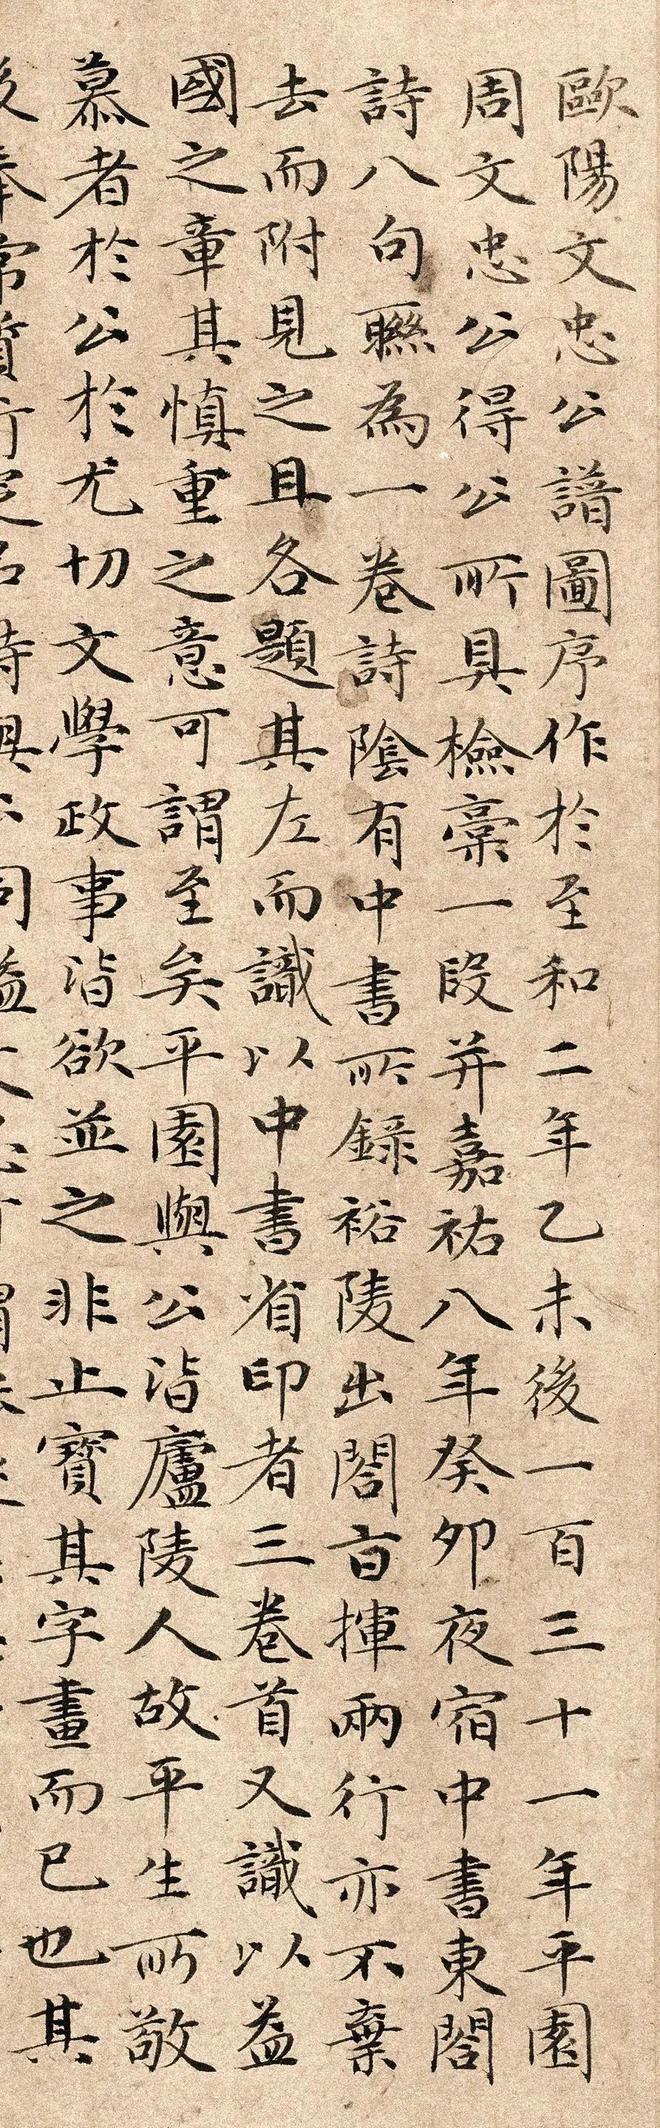 歐陽文忠公譜圖序作於至和二年乙未後一百三十一年平園
周文忠公得公所具檢稾一段并嘉祐八年癸卯夜宿中書東閤
詩八句聮為一卷詩陰有中書所錄裕陵出閤㫖揮兩行亦不棄
去而附見之且各題其左而識以中書省印者三卷首又識以益
國之章其慎重之意可謂至矣平園與公皆廬陵人故平生所敬
慕者於公於尤切文學政事皆欲並之非止寳其字畫而已也其